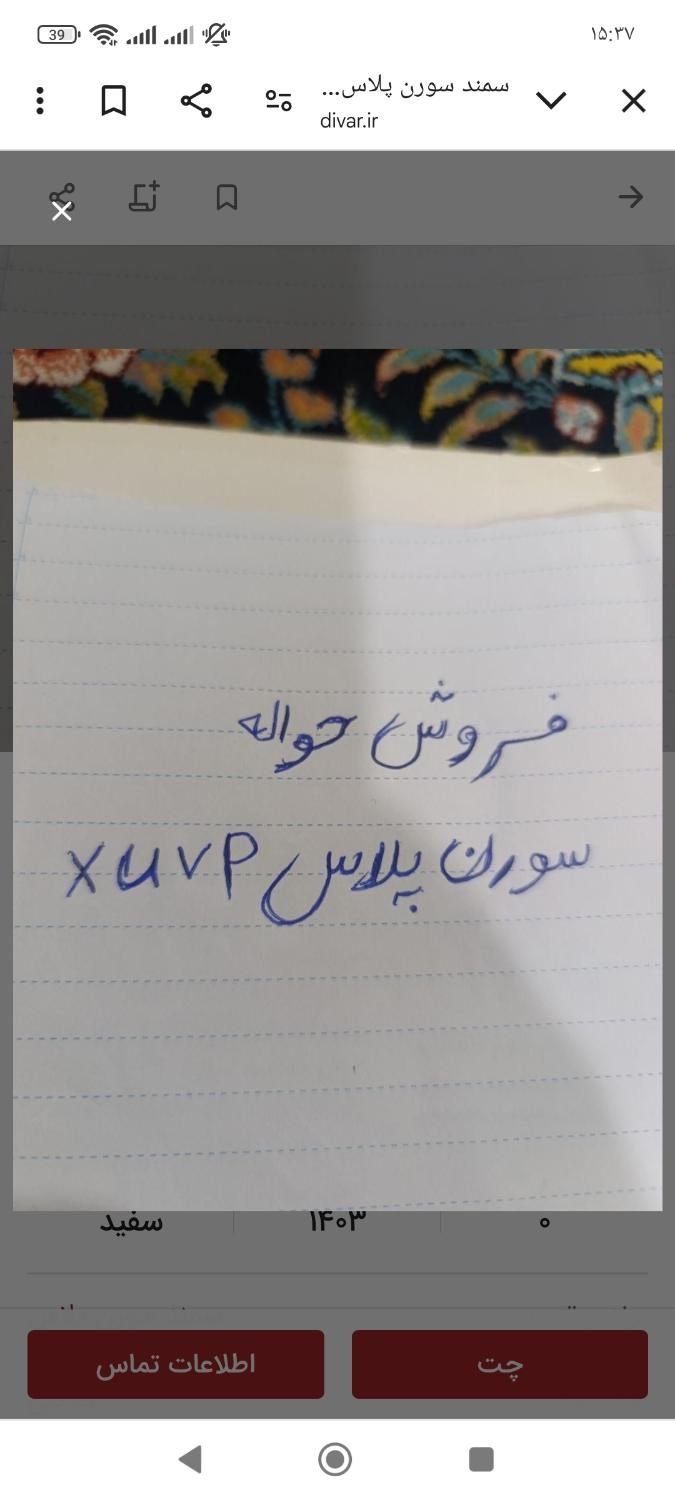 39
۱۵:۳۷
سمند سورن پلاس...
divar.ir
فروش حواله
سورن پلاس XU7P
۰ ۱۴۰۳ سفید
چت
اطلاعات تماس